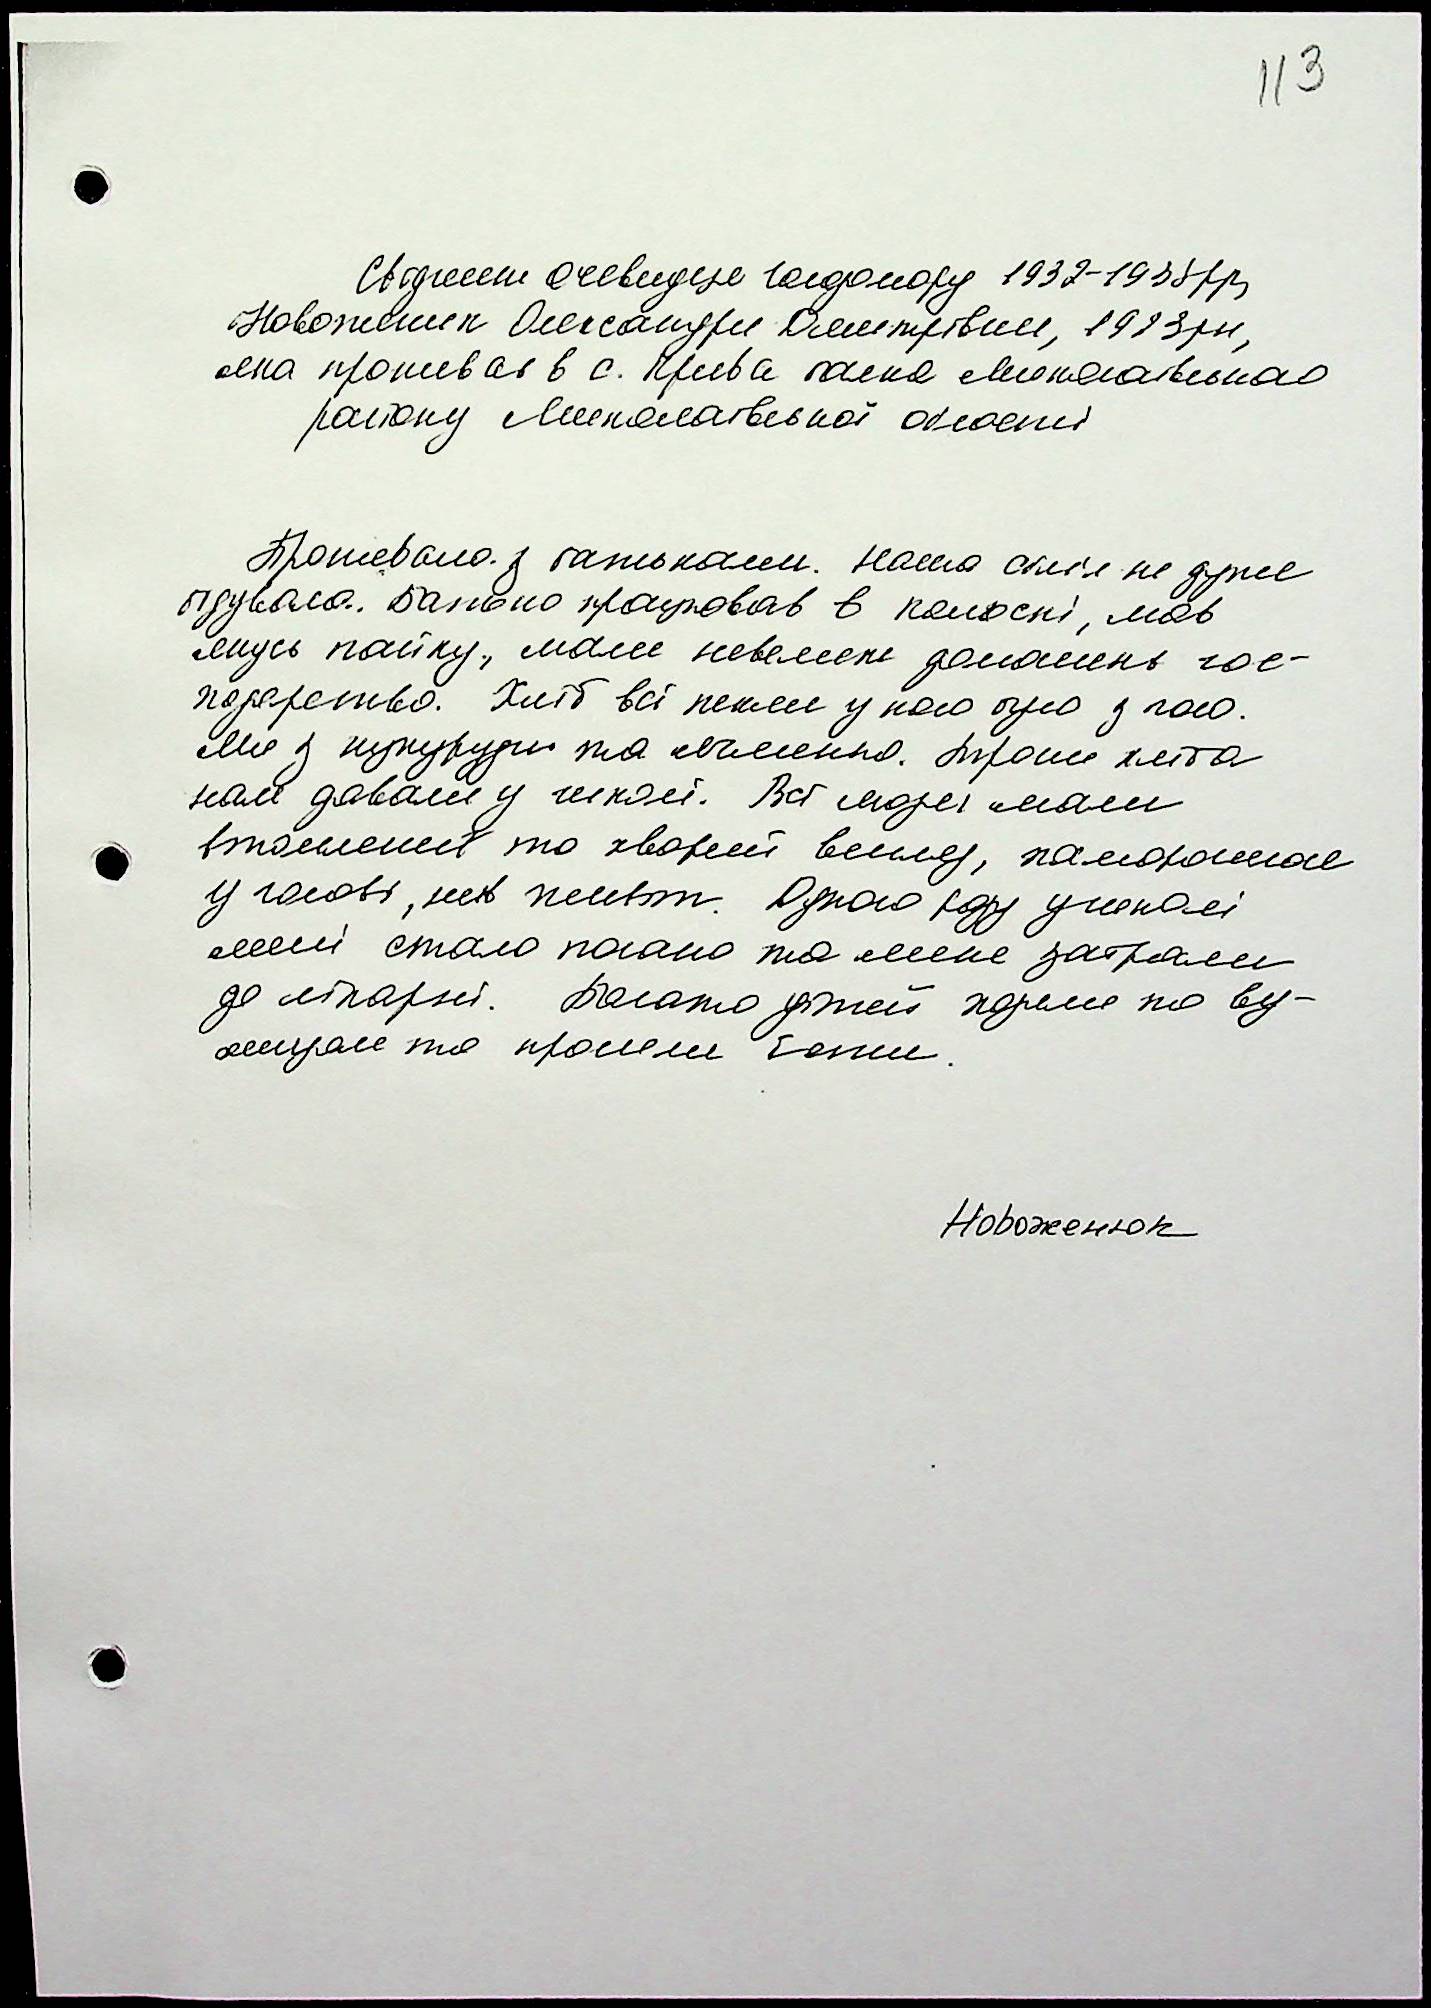 113
Свідчення очевидця голодомору 1932-1933рр,
Новоженюк Олександри Дмитрівни, 1923рн,
яка проживає в с. Крива балка Миколаївського
району Миколаївської області
Проживала з батьками. Наша сім'я не дуже
бідувала. Батько працював в колгоспі, мав
якусь пайку, мали невелике домашнє гос-
подарство. Хліб всі пекли у кого було з чого.
Ми з кукурудзи та ячменю. Трохи хліба
нам давали у школі. Всі люди мали
втомлений та хворий вигляд, паморочилось
у голові, пух живіт. Одного разу у школі
мені стало погано та мене забрали
до лікарні. Багато дітей ходили по ву-
лицям та просили їсти.
Новоженюк